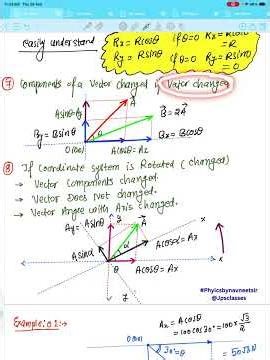 easily understand
Rx = Rcosθ if θ=0 Rx = Rcos0
= R
Ry = Rsinθ if θ=0 Ry = Rsin0
= 0
⑦ Components of a Vector changed if Vector changed
Asinθ=Ay
A⃗
B⃗ = 2A⃗
By = Bsinθ
θ
Bx = Bcosθ
O(0,0) Acosθ = Ax
⑧ If Coordinate system is Rotated (changed)
→ Vector Components changed.
→ Vector Does Not changed.
→ Vector Angle with Axis changed.
Ay = Asinθ
A⃗
x
Asinα
α
Acosα = Ax
θ
Acosθ = Ax
#Phyicsbynavneetsir
@Jpsclasses
Example: 01:-
Ax = Acosθ
= 100cos30° = 100×√3/2
O(0,0)
30°=θ
= 50√3 N